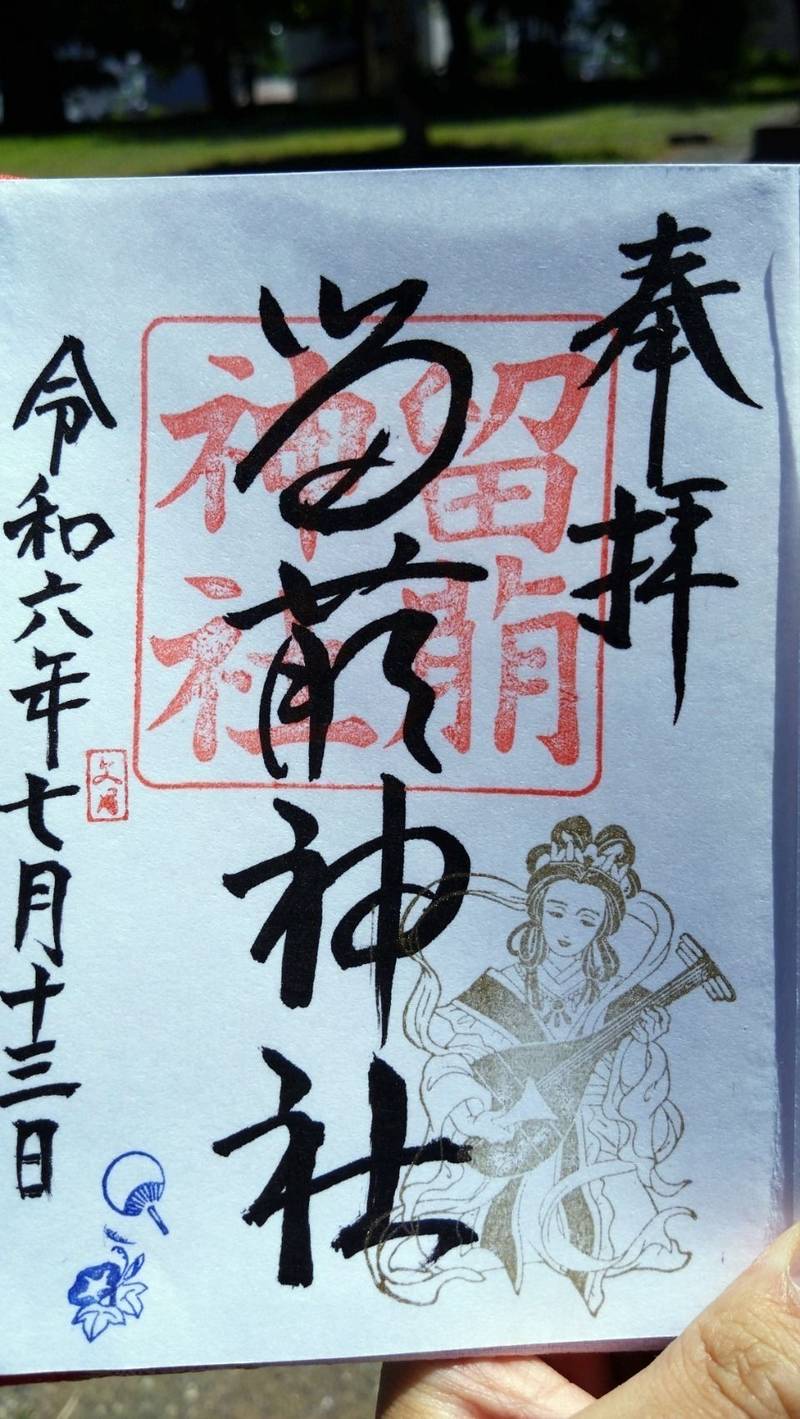 奉拝
留萌神社
留萌
神社
令和六年七月十三日
文月